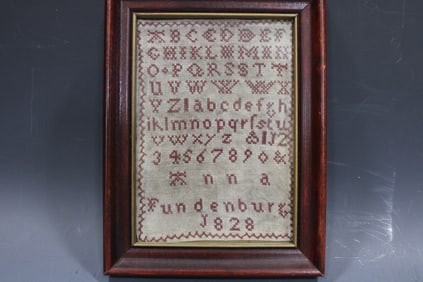 A B C C D E F
G H I K L M M I N
O · P Q R S S T T
U V W W X X
Y Z l a b c d e f g h
i k l m n o p q r ſ s t u
v w x y z & 1 J 2
3 4 5 6 7 8 9 0 &
A n n a
Fundenburg
J 828